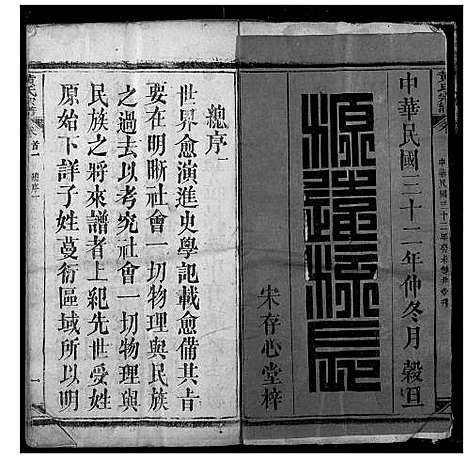 黄氏宗譜
中華民國三十二年
中華民國三十二年仲冬月 穀旦
源遠流長
宋存心堂梓
總序一
世界愈演進史學記載愈備其旨
要在明晰社會一切物理與民族
之過去以考究社會一切物理與
民族之將來譜者上紀先世受姓
原始下詳子姓蔓衍區域所以明
黄氏宗譜
卷首一
總序一
一